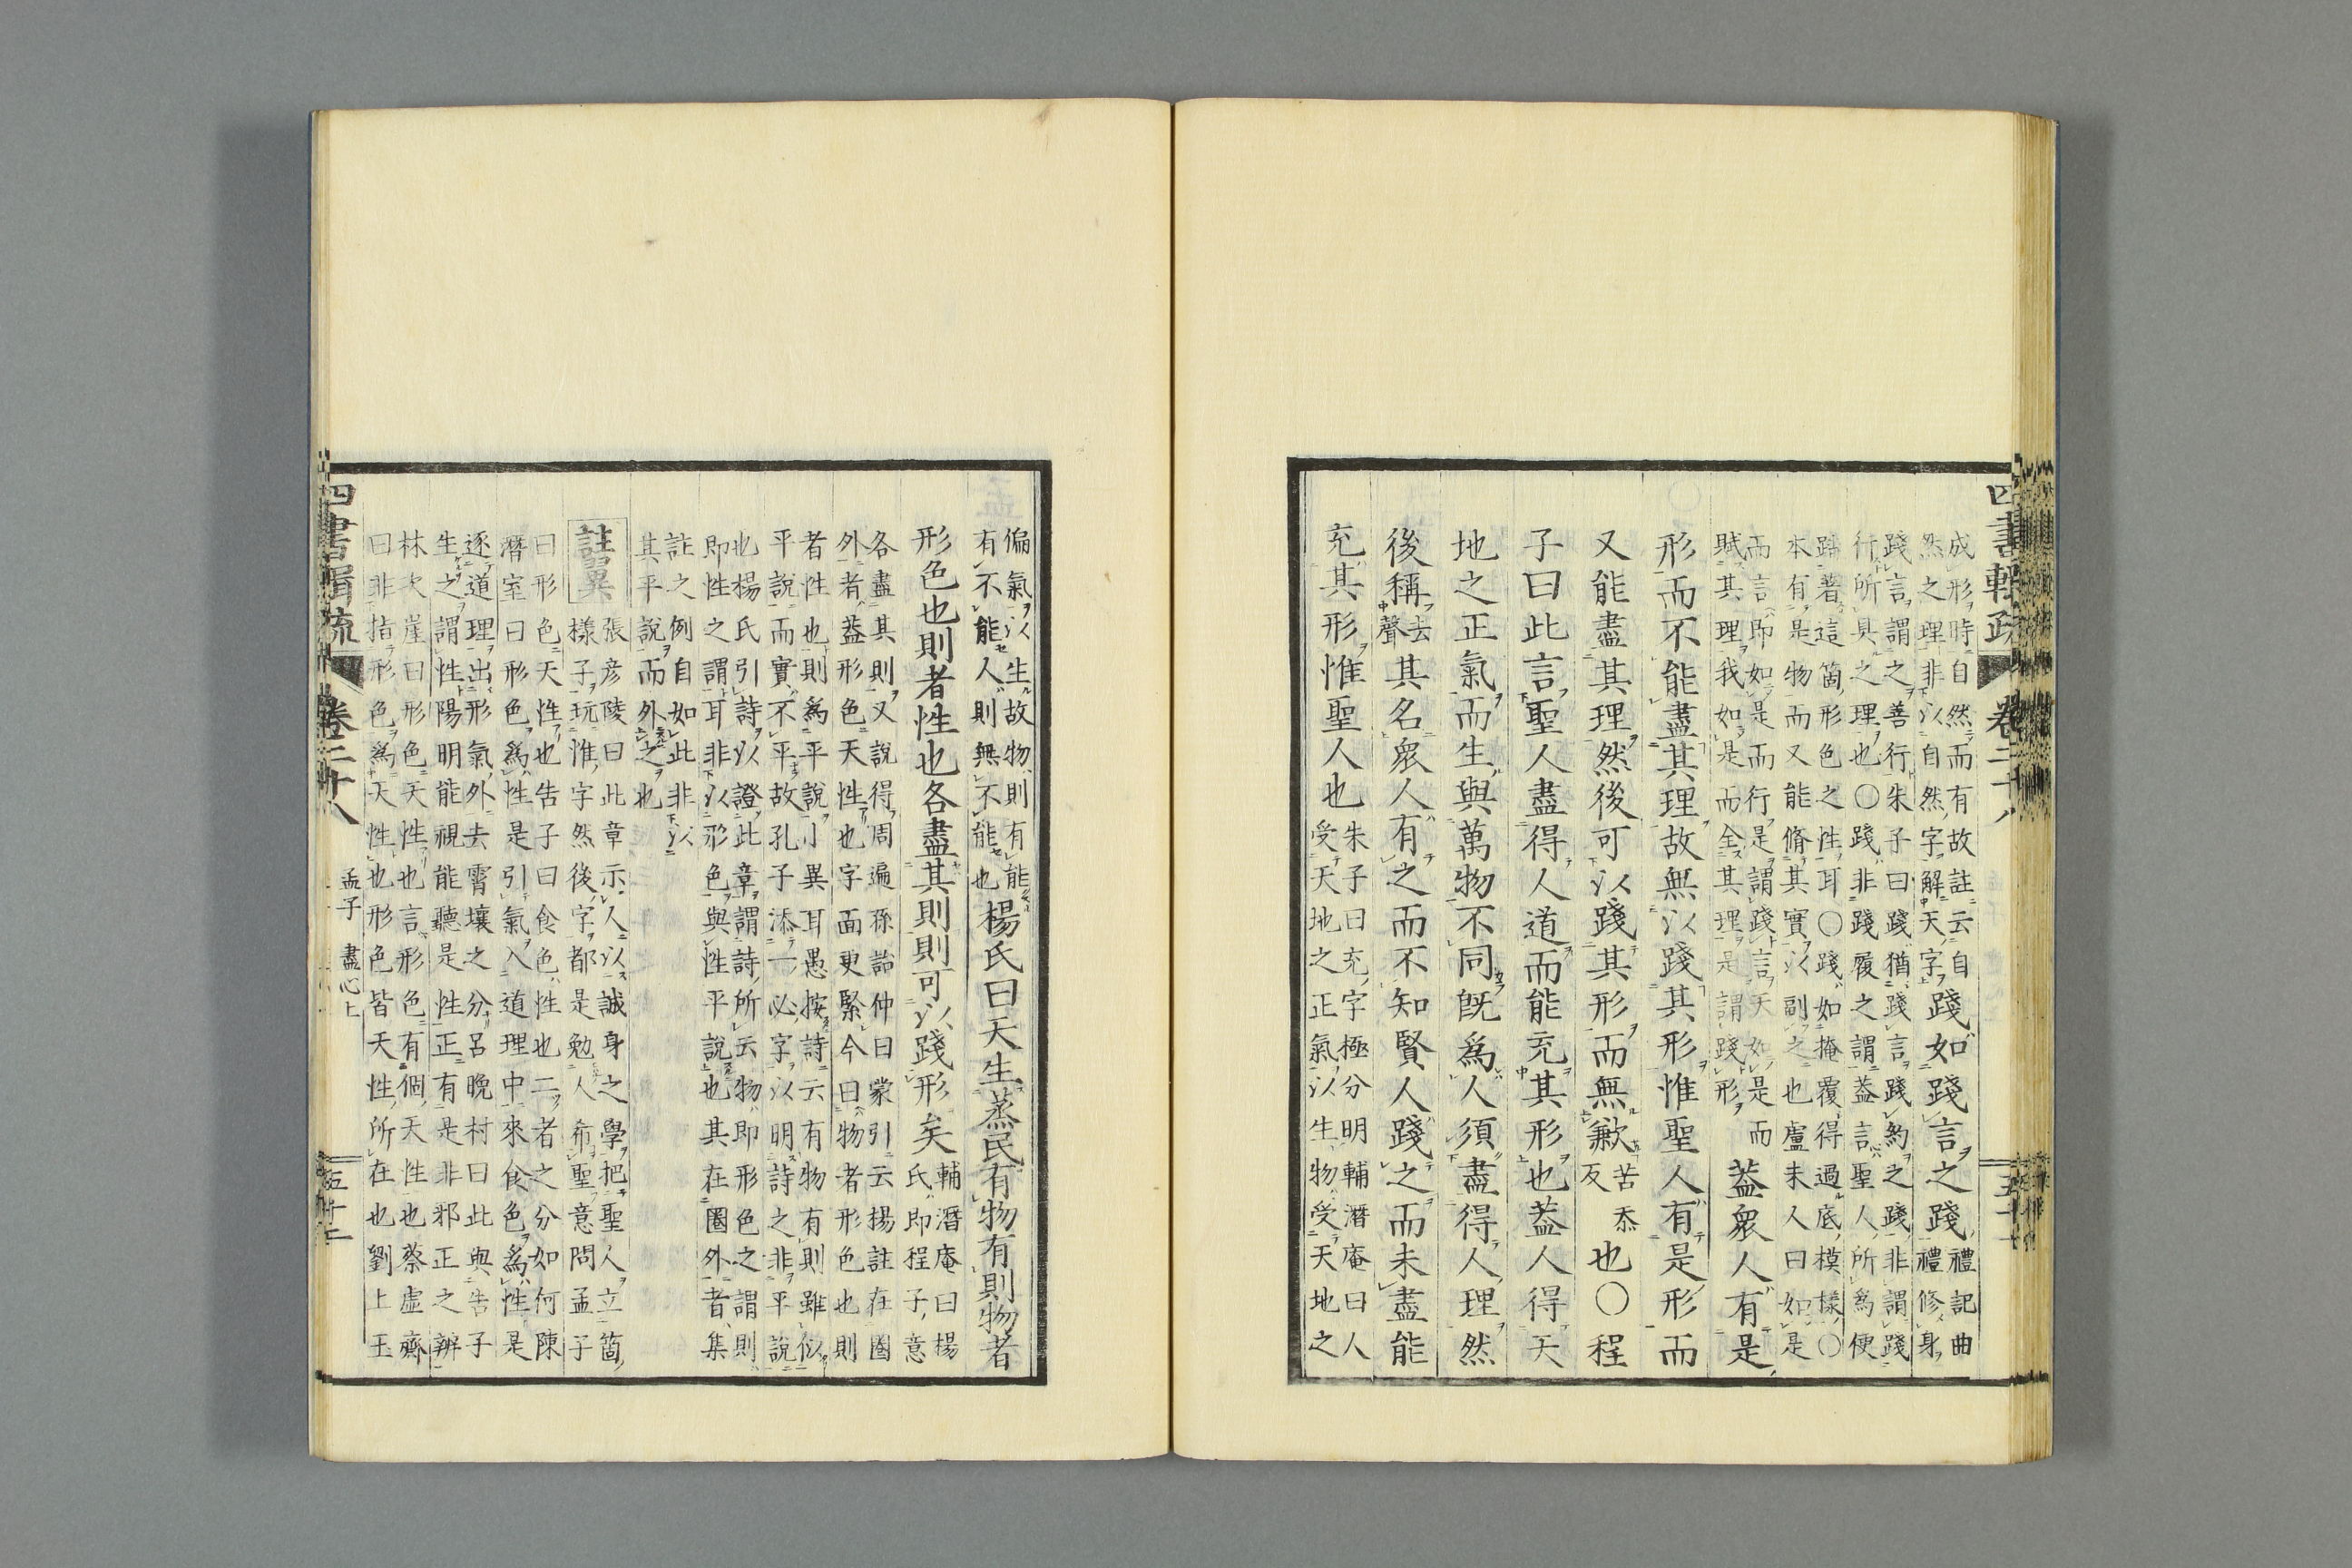 成形時自然而有故註云自
然之理非以自然字解天字
踐如踐言之踐
禮記曲
禮修身
踐言謂之善行朱子曰踐猶踐言踐約之踐非謂踐
行所具之理也〇踐非踐履之謂蓋言聖人所爲便
踏著這箇形色之性耳〇踐如掩覆得過底模樣〇
本有是物而又能脩其實以副之也盧未人曰如是
而言即如是而行是謂踐言天如是而
賦其理我如是而全其理是謂踐形
蓋衆人有是
形而不能盡其理故無以踐其形惟聖人有是形而
又能盡其理然後可以踐其形而無歉
苦忝
反
也〇程
子曰此言聖人盡得人道而能充其形也蓋人得天
地之正氣而生與萬物不同旣爲人須盡得人理然
後稱
去
聲
其名衆人有之而不知賢人踐之而未盡能
充其形惟聖人也
朱子曰充字極分明輔潛庵曰人
受天地之正氣以生物受天地之
四書輯疏 卷二十八
偏氣以生故物則有能
有不能人則無不能也
楊氏曰天生蒸民有物有則物者
形色也則者性也各盡其則則可以踐形矣
輔潛庵曰楊
氏即程子意
各盡其則又說得周遍孫詒仲曰蒙引云楊註在圈
外者蓋形色天性也字面更緊今曰物者形色也則
者性也則爲平說小異耳愚按詩云有物有則雖似
平說而實不平故孔子添一必字以明詩之非平說
也楊氏引詩以證此章謂詩所云物即形色之謂則
即性之謂耳非以形色與性平說也其在圈外者集
註之例自如此非以
其平說而外之也
註翼
張彥陵曰此章示人以誠身之學把聖人立箇
樣子玩惟字然後字都是勉人希聖意問孟子
曰形色天性也告子曰食色性也二者之分如何陳
潛室曰形色爲性是引氣入道理中來食色爲性是
逐道理出形氣外去霄壤之分呂晚村曰此與告子
生之謂性陽明能視能聽是性正有是非邪正之辨
林次崖曰形色天性也言形色有個天性也蔡虛齋
曰非指形色爲天性也形色皆天性所在也劉上玉
四書輯疏 卷二十八 孟子 盡心上 五十二